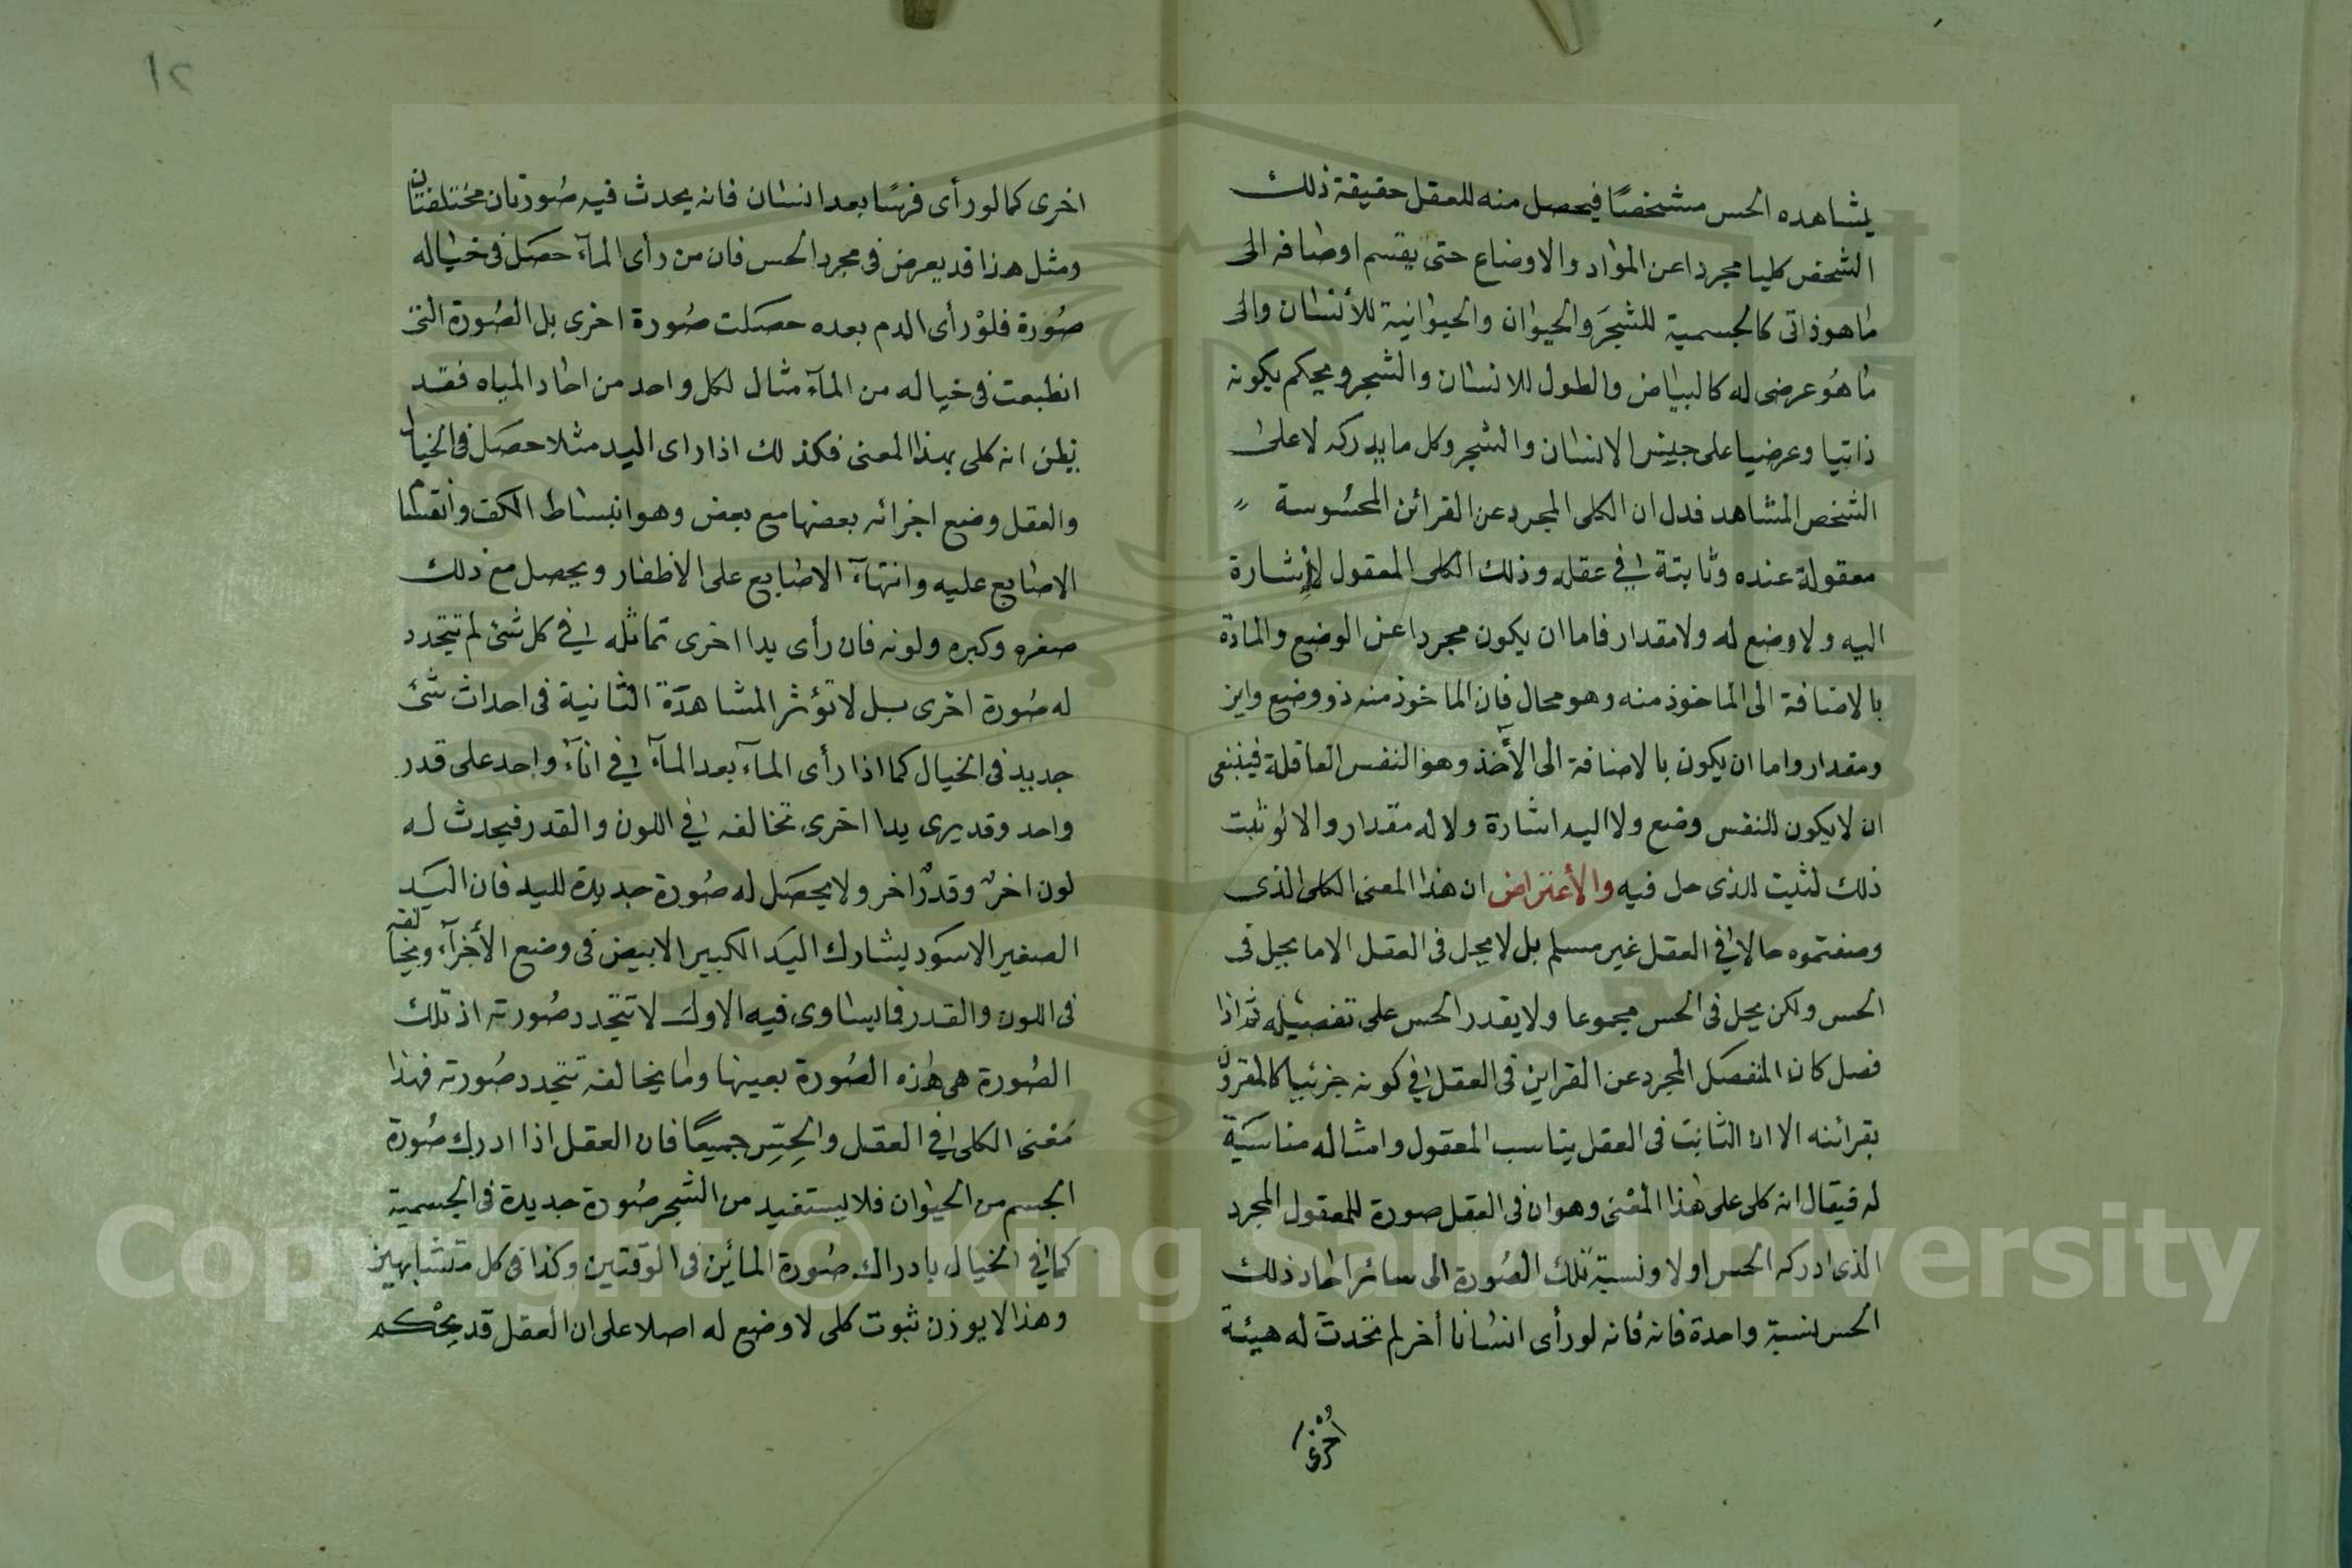 يشاهده الحس مشخصًا فيحصل منه للعقل حقيقة ذلك
الشخص كليا مجردا عن المواد والاوضاع حتى يقسم اوصافه الى
ما هو ذاتى كالجسمية للشجر والحيوان والحيوانية للأنسان والى
ما هو عرضى له كالبياض والطول للانسان والشجر ويحكم بكونه
ذاتيا وعرضيا على جنس الانسان والشجر وكل ما يدركه لا على
الشخص المشاهد فدل ان الكلى المجرد عن القرائن المحسوسة
معقولة عنده وثابتة فى عقله وذلك الكلى المعقول لا اشارة
اليه ولا وضع له ولا مقدار فاما ان يكون مجردا عن الوضع والمادة
بالاضافة الى الماخوذ منه وهو محال فان الماخوذ منه ذو وضع واين
ومقدار واما ان يكون بالاضافة الى الأخذ وهو النفس العاقلة فينبغى
ان لا يكون للنفس وضع ولا اليه اشارة ولا له مقدار والا لو ثبت
ذلك لثبت للذى حل فيه والأعتراض ان هذا المعنى الكلى الذى
وضعتموه حالا فى العقل غير مسلم بل لا يحل فى العقل الا ما يحل فى
الحس ولكن يحل فى الحس مجموعا ولا يقدر الحس على تفصيله ثم اذا
فصل كان المنفصل المجرد عن القراين فى العقل فى كونه جزئيا كالمقرون
بقرائنه الا ان الثابت فى العقل يناسب المعقول وامثاله مناسبة
له فيقال انه كلى على هذا المعنى وهو ان فى العقل صورة للمعقول المجرد
الذى ادركه الحس اولا ونسبة تلك الصورة الى سائر احاد ذلك
الحس نسبة واحدة فانه فانه لو رأى انسانا أخر لم تحدث له هيئة
اخرى
١٢
اخرى كما لو رأى فرسًا بعد انسان فانه يحدث فيه صورتان مختلفتان
ومثل هذا قد يعرض فى مجرد الحس فان من رأى المآء حصل فى خياله
صورة فلو رأى الدم بعده حصلت صورة اخرى بل الصورة التى
انطبعت فى خياله من المآء مثال لكل واحد من احاد المياه فقد
يظن انه كلى بهذا المعنى فكذلك اذا راى اليد مثلا حصل فى الخيال
والعقل وضع اجزائه بعضها مع بعض وهو انبساط الكف وانقسام
الاصابع عليه وانتهآء الاصابع على الاظفار ويحصل مع ذلك
صغره وكبره ولونه فان رأى يدا اخرى تماثله فى كل شئ لم تتجدد
له صورة اخرى بل لا تؤثر المشاهدة الثانية فى احداث شئ
جديد فى الخيال كما اذا رأى المآء بعد المآء فى انآء واحد على قدر
واحد وقد يرى يدا اخرى تخالفه فى اللون والقدر فيحدث له
لون اخر وقدر اخر ولا يحصل له صورة جديدة لليد فان اليد
الصغير الاسود يشارك اليد الكبير الابيض فى وضع الأجزآء ويخالفه
فى اللون والقدر فما يساوى فيه الاول لا تتجدد صورته اذ تلك
الصورة هى هذه الصورة بعينها وما يخالفه تتجدد صورته فهذا
معنى الكلى فى العقل والحس جميعًا فان العقل اذا ادرك صورة
الجسم من الحيوان فلا يستفيد من الشجر صورة جديدة فى الجسمية
كما فى الخيال بادراك صورة المائين فى الوقتين وكذا فى كل متشابهين
وهذا لا يوذن ثبوت كلى لا وضع له اصلا على ان العقل قد يحكم
Copyright © King Saud University